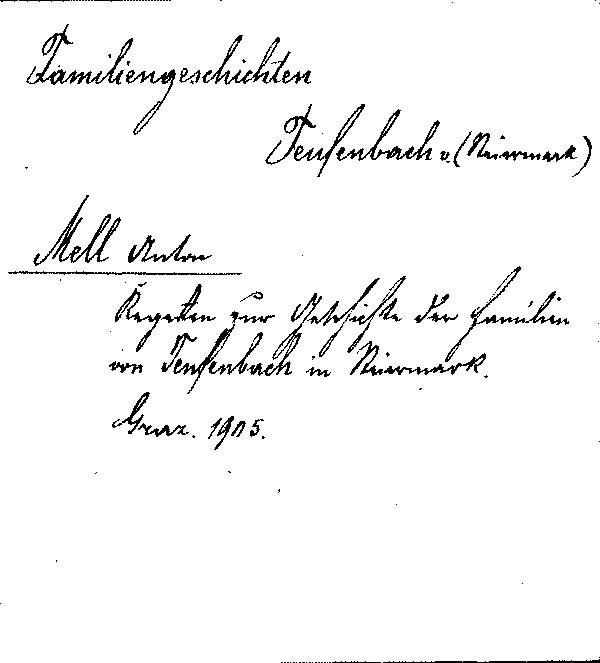 Familiengeschichten
Teufenbach v. (Steiermark)
Mell Anton
Regesten zur Geschichte der Familien
von Teufenbach in Steiermark.
Graz. 1905.